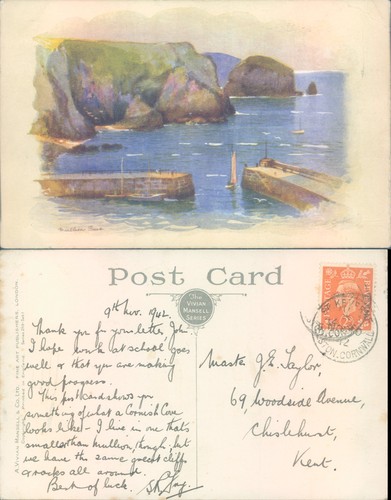 Mullion Cove
Post Card
The
VIVIAN
MANSELL
SERIES
A. VIVIAN MANSELL & CO. LTD. FINE ART PUBLISHERS, LONDON
9th Nov. 1942
Thank you for your letter John
I hope work at school goes
well & that you are making
good progress.
This postcard shows you
something of what a Cornish Cove
looks like - I live in one that's
smaller than Mullion, though, but
we have the same great cliffs
& rocks all around.
Best of luck.
POSTAGE
CORNWALL
Master J.E. Taylor,
69, Woodside Avenue,
Chislehurst,
Kent.